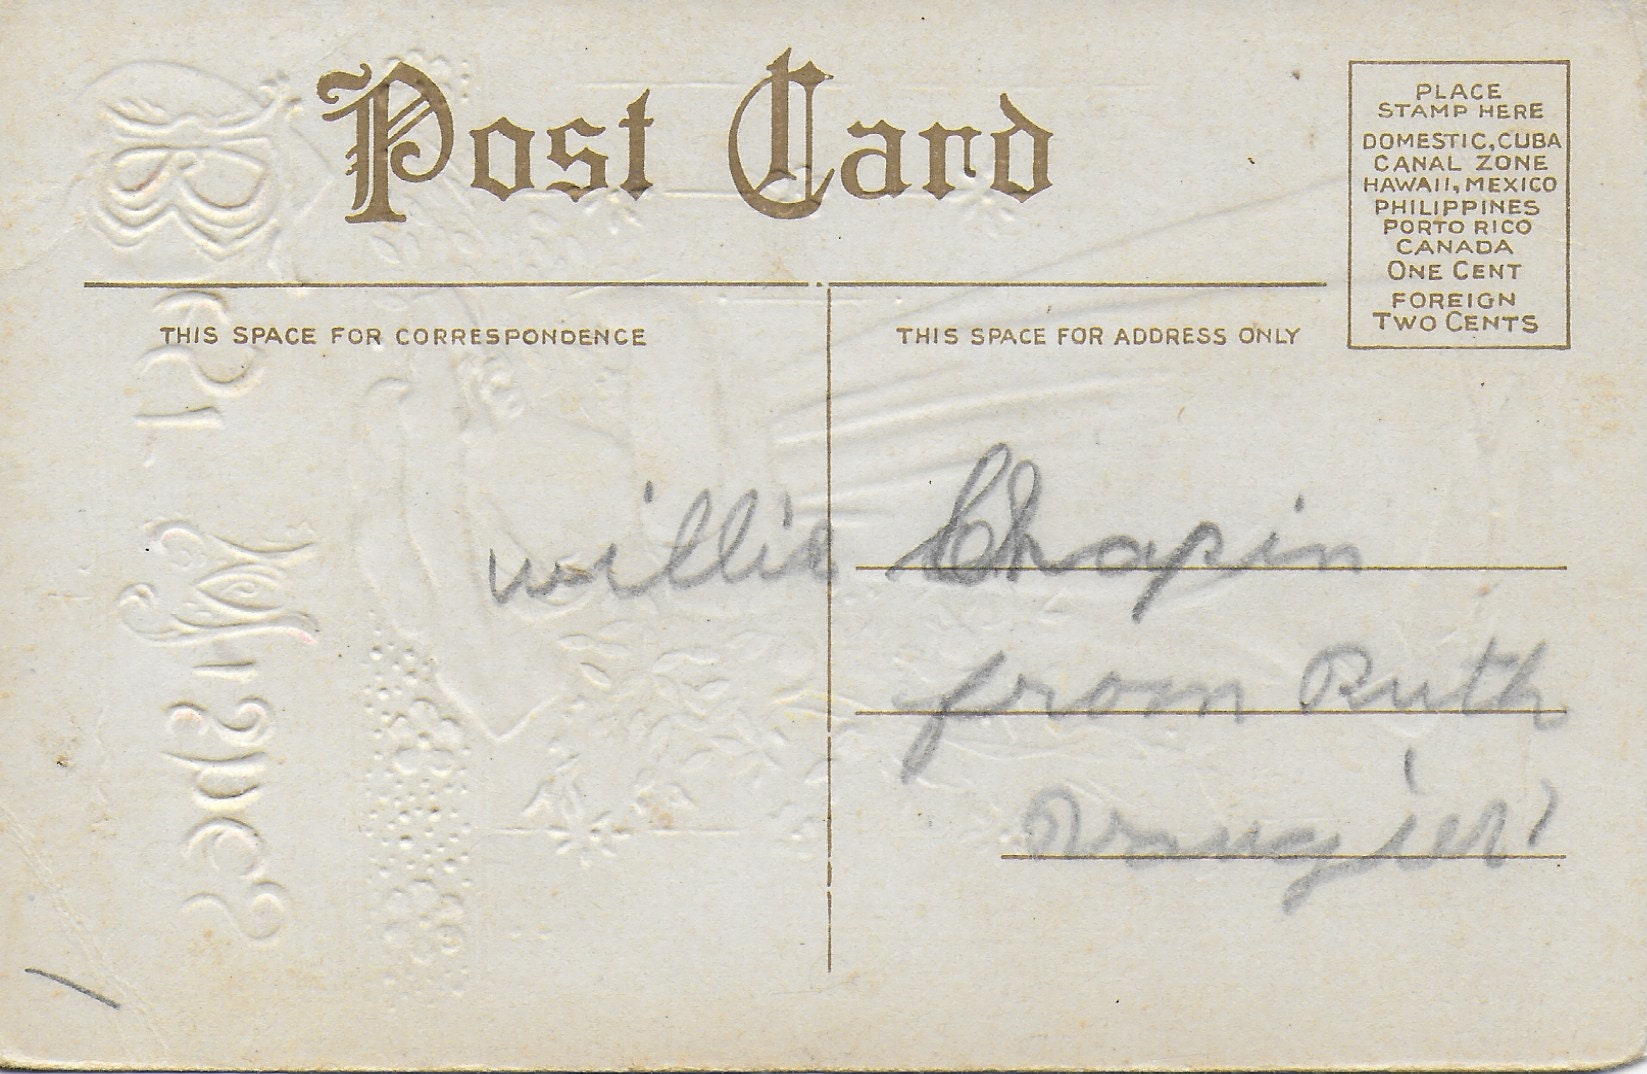 Post Card
PLACE
STAMP HERE
DOMESTIC, CUBA
CANAL ZONE
HAWAII, MEXICO
PHILIPPINES
PORTO RICO
CANADA
ONE CENT
FOREIGN
TWO CENTS
THIS SPACE FOR CORRESPONDENCE
THIS SPACE FOR ADDRESS ONLY
willie Chapin
from Ruth